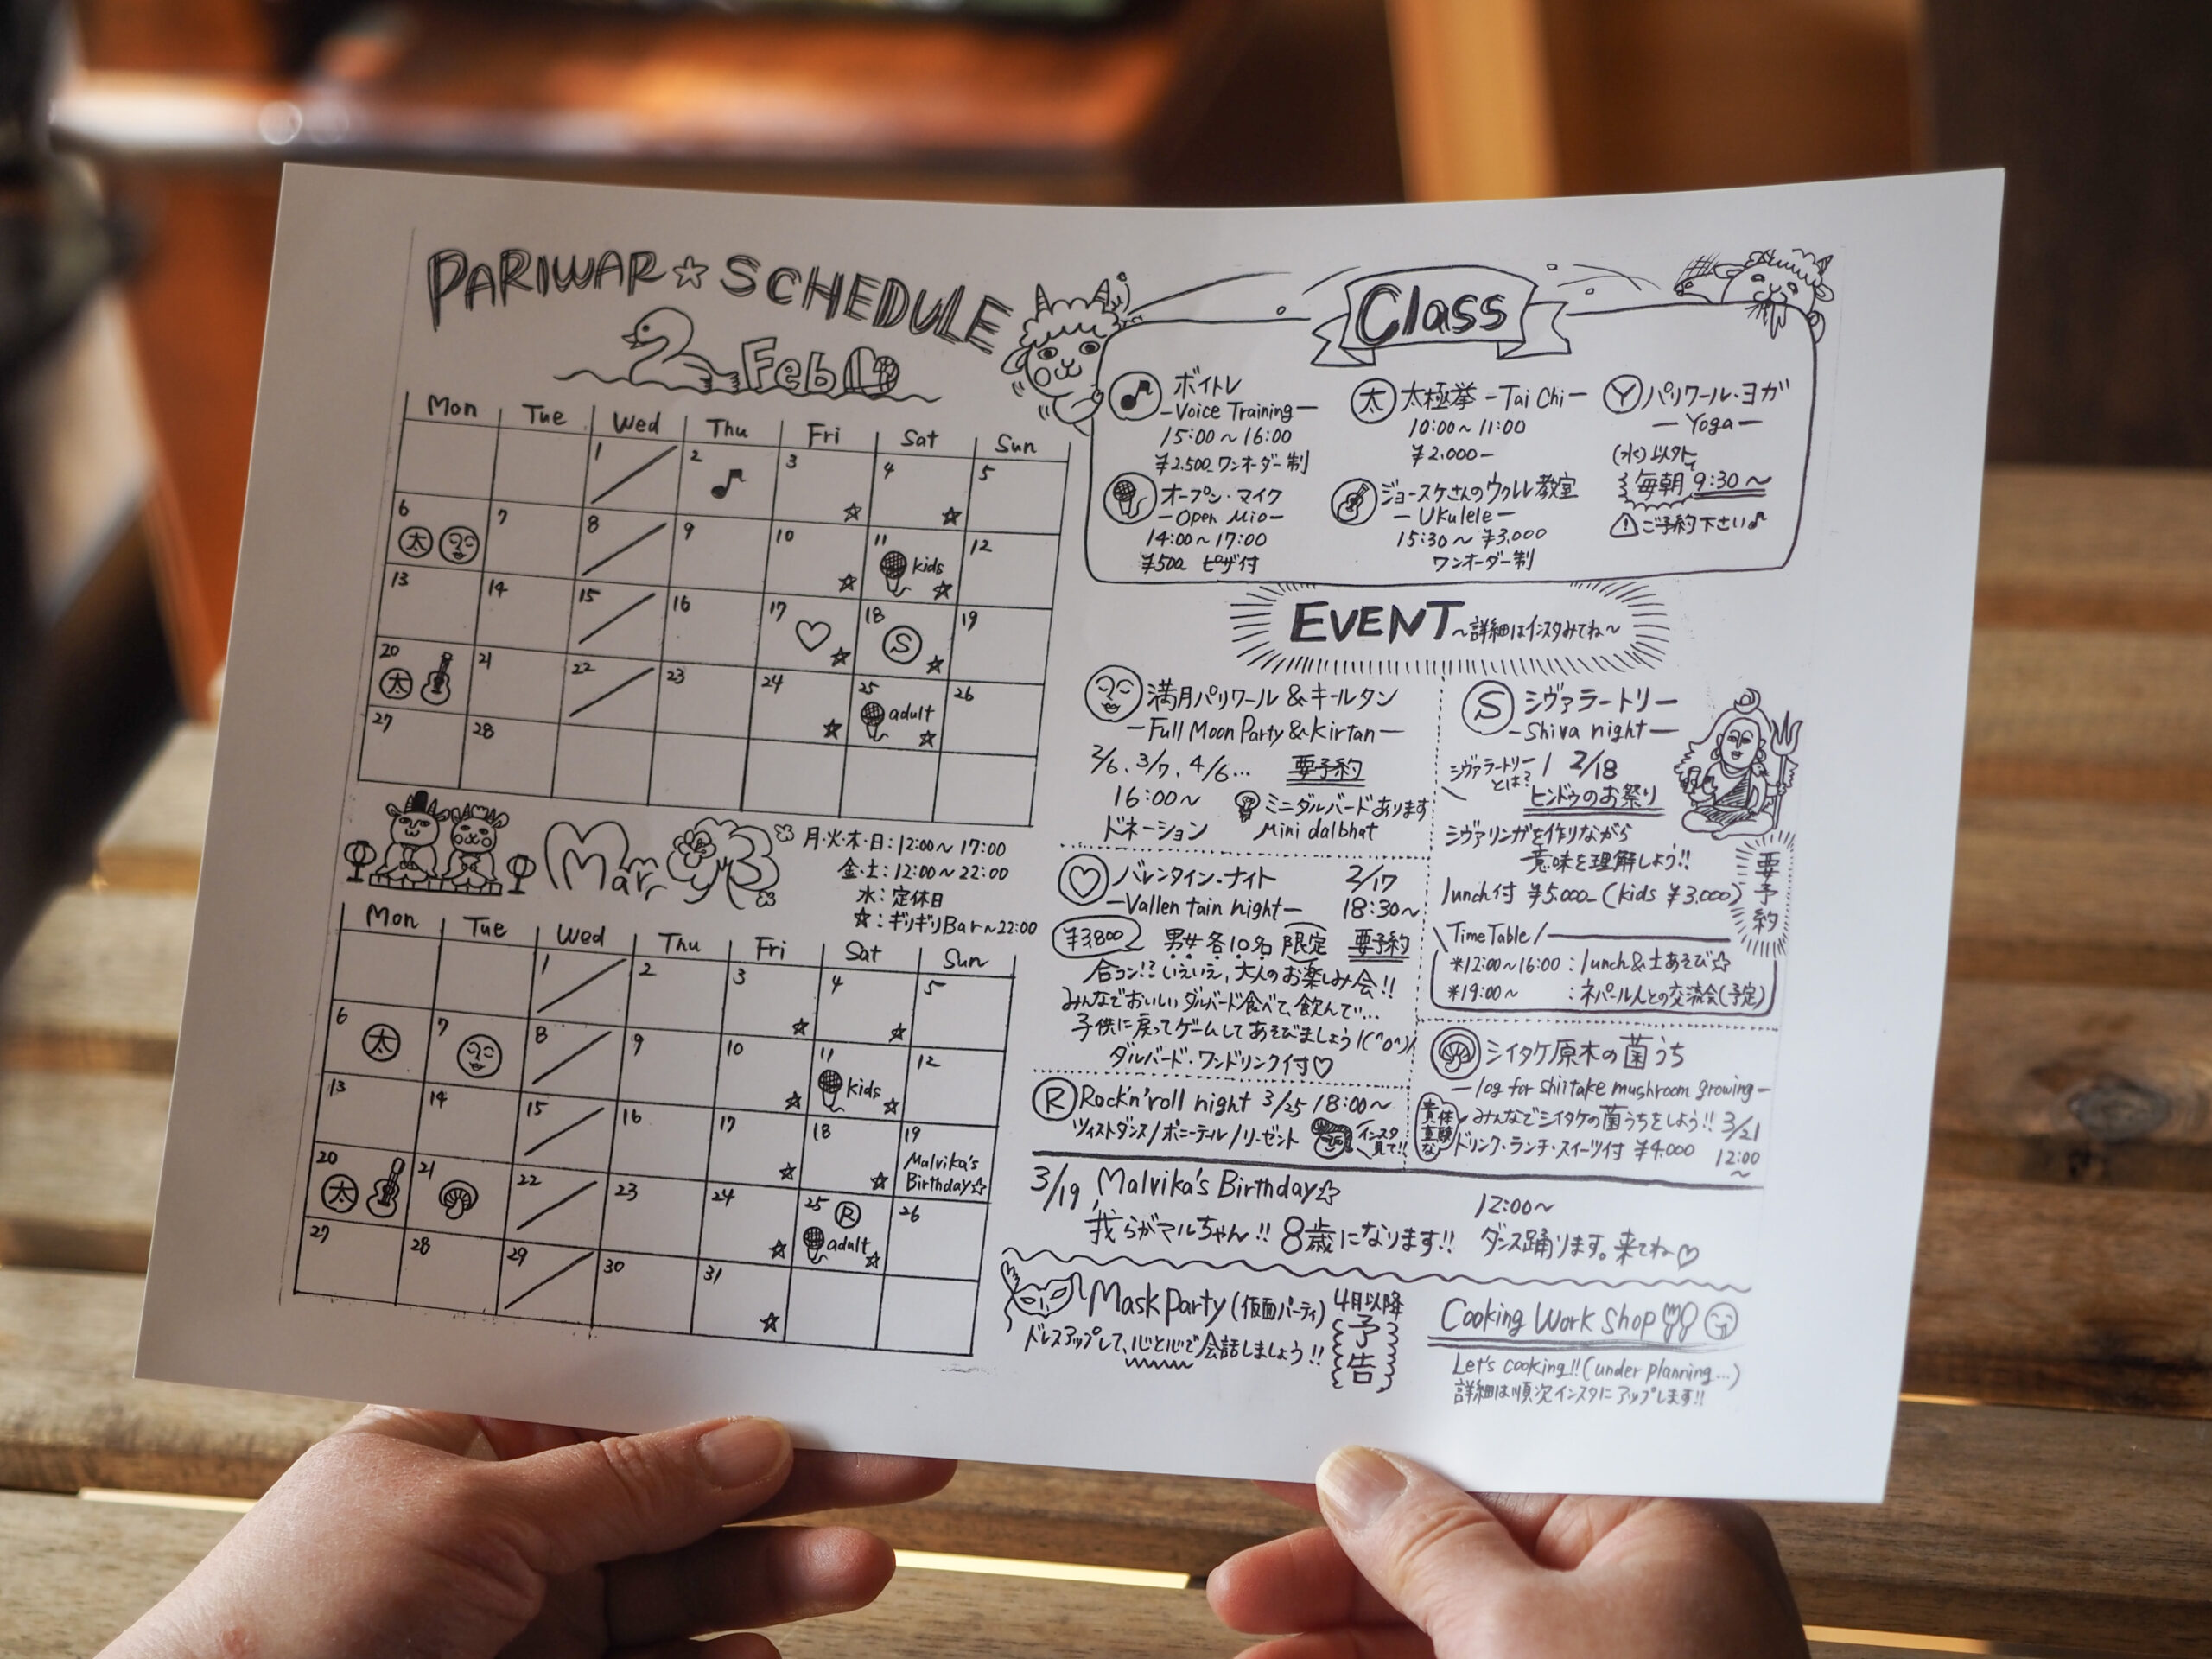 PARIWAR☆SCHEDULE
2 Feb
Mon Tue Wed Thu Fri Sat Sun
1 2 3 4 5
6 太 7 8 9 10 11 kids 12
13 14 15 16 17 18 S 19
20 太 21 22 23 24 25 adult 26
27 28
Mar 3
月・火・木・日:12:00~17:00
金・土:12:00~22:00
水:定休日
☆:ギリギリBar~22:00
Mon Tue Wed Thu Fri Sat Sun
1 2 3 4 5
6 太 7 8 9 10 11 kids 12
13 14 15 16 17 18 19 Malvika's Birthday☆
20 太 21 22 23 24 25 R adult 26
27 28 29 30 31
Class
ボイトレ
-Voice Training-
15:00~16:00
¥2.500_ワンオーダー制
太 太極拳 -Tai Chi-
10:00~11:00
¥2.000-
Y パリワール・ヨガ
-Yoga-
(水)以外
毎朝 9:30~
ご予約下さい♪
オープン・マイク
-Open Mic-
14:00~17:00
¥500_ ピザ付
ジョースケさんのウクレレ教室
-Ukulele-
15:30~ ¥3.000
ワンオーダー制
EVENT ~詳細はインスタみてね~
満月パリワール&キールタン
-Full Moon Party&Kirtan-
2/6. 3/7. 4/6... 要予約
16:00~
ドネーション
ミニダルバードあります
Mini dalbhat
S シヴァラートリー
-Shiva night-
シヴァラートリーとは? 2/18
ヒンドゥのお祭り
シヴァリンガを作りながら
意味を理解しよう!!
lunch付 ¥5.000_(kids ¥3.000)
要予約
Time Table
*12:00~16:00:lunch&土あそび☆
*19:00~ :ネパール人との交流会(予定)
バレンタイン・ナイト 2/17
-Vallen tain night- 18:30~
¥3.800 男女各10名 限定 要予約
合コン!?いえいえ、大人のお楽しみ会!!
みんなでおいしいダルバード食べて、飲んで…
子供に戻ってゲームしてあそびましょう!(^o^)/
ダルバード・ワンドリンク付♡
R Rock'n'roll night 3/25 18:00~
ツイストダンス/ポニーテール/リーゼント
インスタ見て!!
シイタケ原木の菌うち
-log for shiitake mushroom growing-
貴重な体験
みんなでシイタケの菌うちをしよう!! 3/21
ドリンク・ランチ・スイーツ付 ¥4.000 12:00~
3/19 Malvika's Birthday☆ 12:00~
我らがマルちゃん!! 8歳になります!! ダンス踊ります。来てね♡
Mask Party(仮面パーティ) 4月以降
予告
ドレスアップして、心と心で会話しましょう!!
Cooking Work Shop
Let's cooking!!(under planning...)
詳細は順次インスタにアップします!!